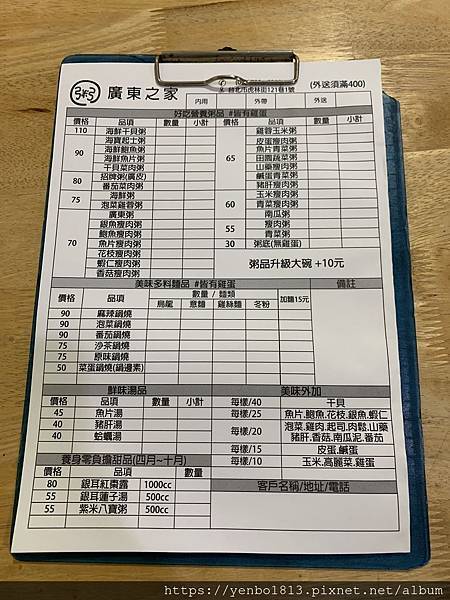 粥 廣東之家
台北市虎林街121巷1號
(外送須滿400)
內用 外帶 外送
好吃營養粥品 #皆有雞蛋
價格 品項 數量 小計 價格 品項 數量 小計
110 海鮮干貝粥 65 雞蓉玉米粥
90 海寶起士粥 皮蛋瘦肉粥
海鮮鮑魚粥 魚片青菜粥
海鮮魚片粥 田園蔬菜粥
干貝菜肉粥 山藥瘦肉粥
80 招牌粥(廣皮) 鹹蛋青菜粥
番茄菜肉粥 豬肝瘦肉粥
75 海鮮粥 60 玉米瘦肉粥
泡菜雞蓉粥 青菜瘦肉粥
70 廣東粥 南瓜粥
銀魚瘦肉粥 55 瘦肉粥
鮑魚瘦肉粥 青菜粥
魚片瘦肉粥 30 粥底(無雞蛋)
花枝瘦肉粥
蝦仁瘦肉粥 粥品升級大碗 +10元
香菇瘦肉粥
美味多料麵品 #皆有雞蛋 備註
價格 品項 數量 / 麵類 加麵15元
烏龍 意麵 雞絲麵 冬粉
90 麻辣鍋燒
90 泡菜鍋燒
90 番茄鍋燒
75 沙茶鍋燒
75 原味鍋燒
50 菜蛋鍋燒(鍋邊素)
鮮味湯品 美味外加
價格 品項 數量 小計 每樣/40 干貝
45 魚片湯 每樣/25 魚片.鮑魚.花枝.銀魚.蝦仁
40 豬肝湯 每樣/20 泡菜.雞肉.起司.肉鬆.山藥
40 蛤蠣湯 豬肝.香菇.南瓜泥.番茄
每樣/15 皮蛋.鹹蛋
養身零負擔甜品(四月~十月) 每樣/10 玉米.高麗菜.雞蛋
價格 品項 數量
80 銀耳紅棗露 1000cc 客戶名稱/地址/電話
55 銀耳蓮子湯 500cc
55 紫米八寶粥 500cc
https://yenbo1813.pixnet.net/album